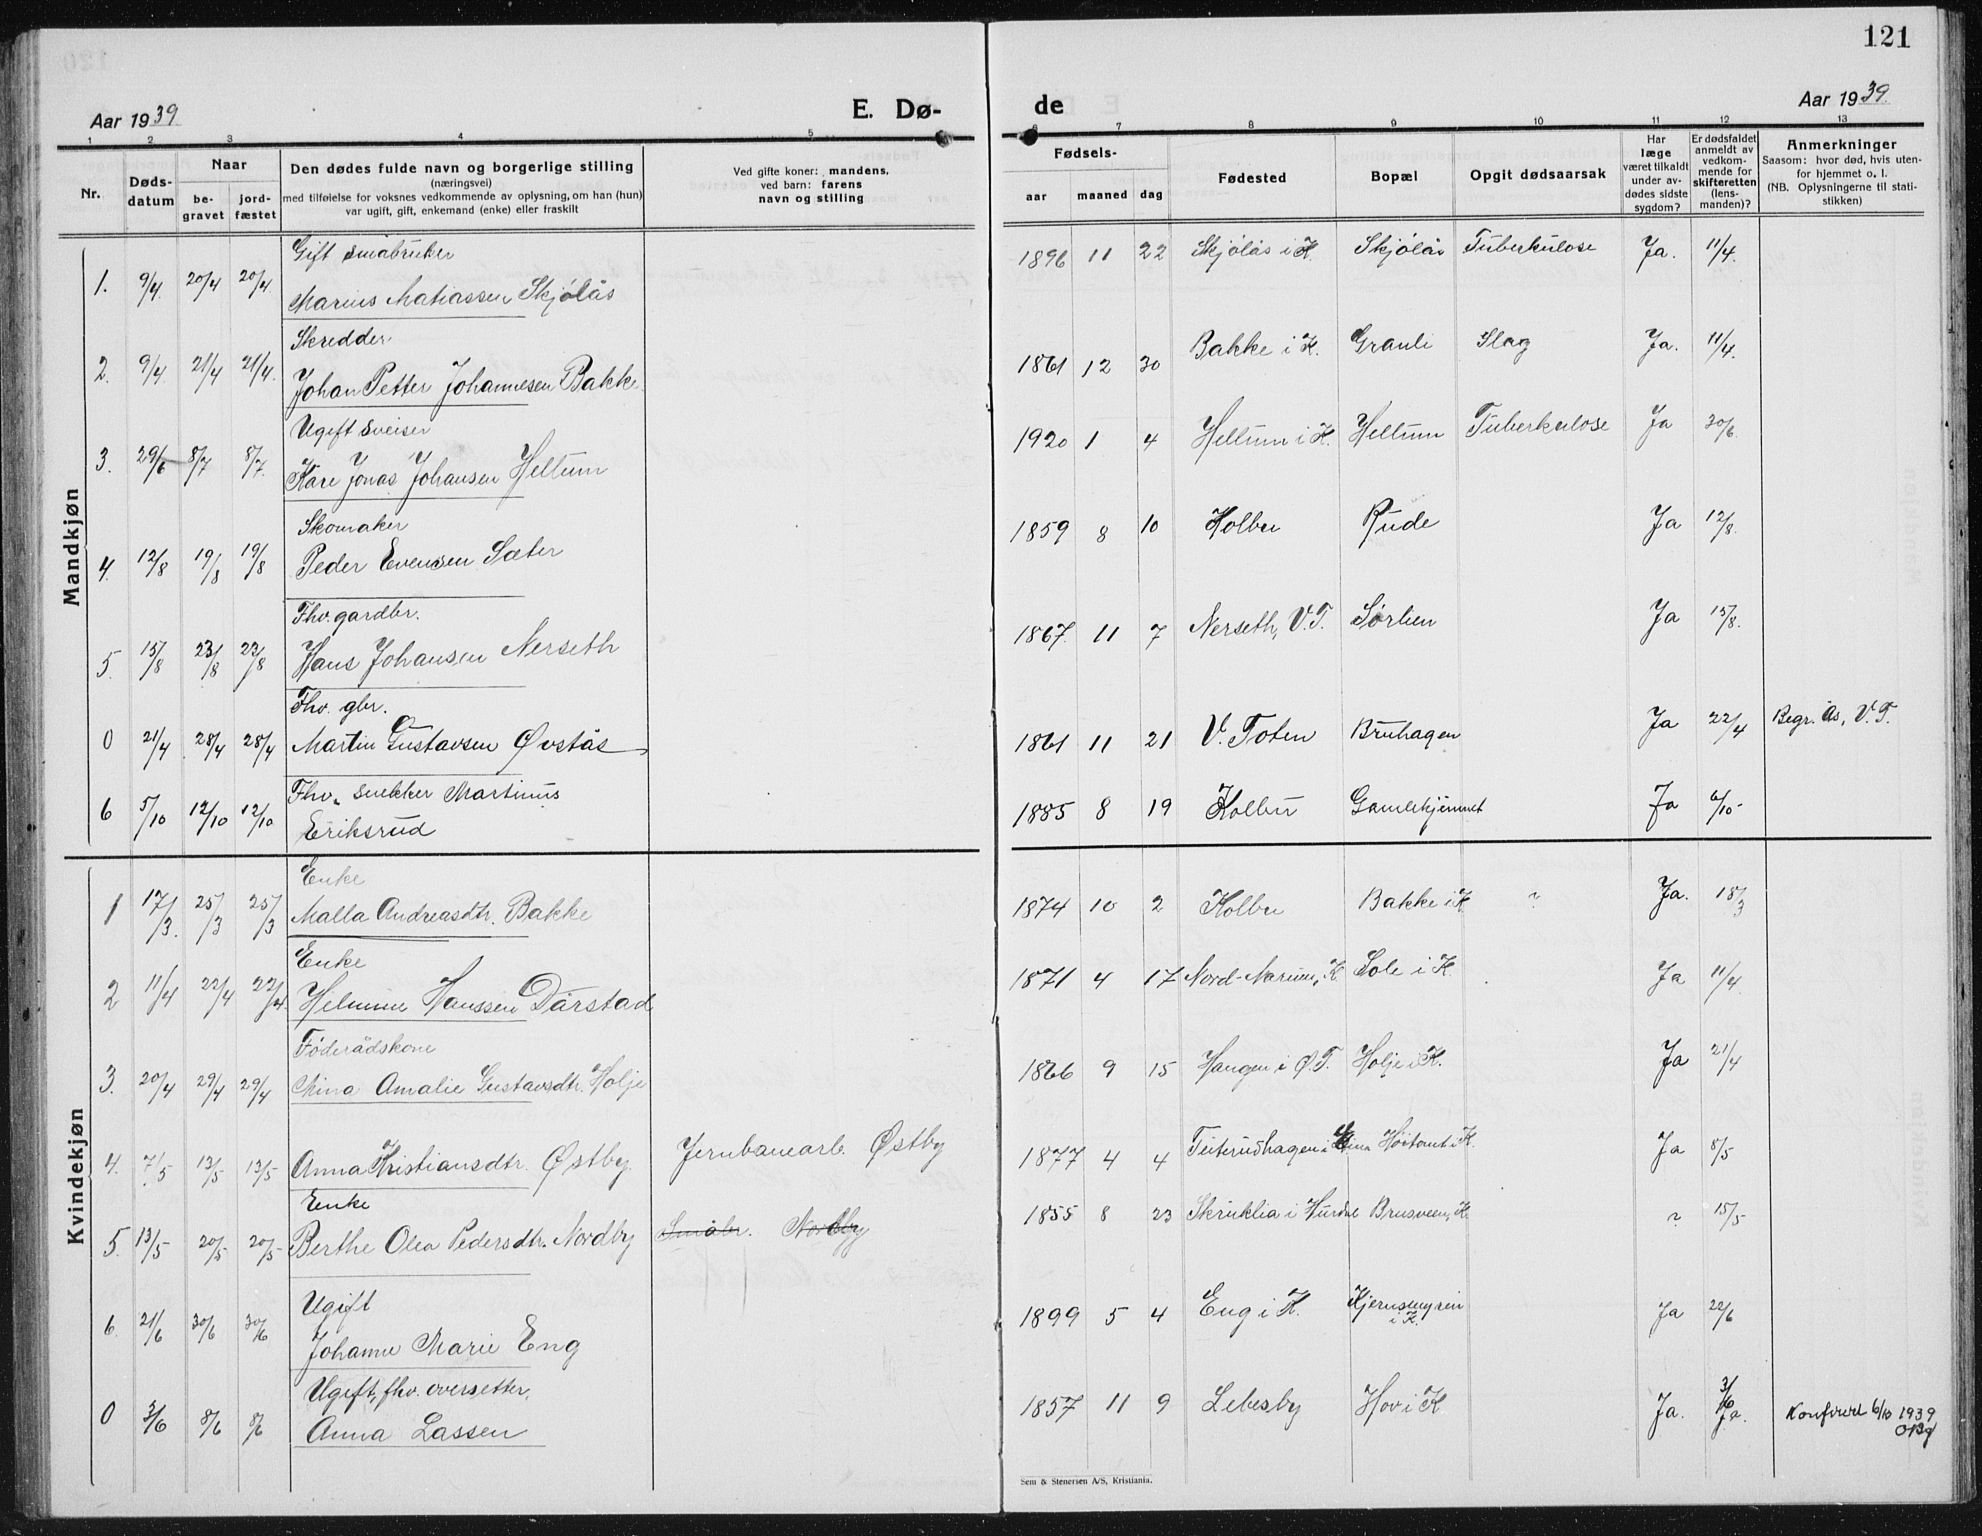 121
Aar 1939
E. Dø-
de
Aar 1939.
1 2 3 4 5 6 7 8 9 10 11 12 13
Nr.
Døds-
datum
Naar
be-
gravet
jord-
fæstet
Den dødes fulde navn og borgerlige stilling
(næringsvei)
med tilføielse for voksnes vedkommende av oplysning, om han (hun)
var ugift, gift, enkemand (enke) eller fraskilt
Ved gifte koner: mandens,
ved barn: farens
navn og stilling
Fødsels-
aar maaned dag
Fødested
Bopæl
Opgit dødsaarsak
Har
læge
været tilkaldt
under av-
dødes sidste
sygdom?
Er dødsfaldet
anmeldt av
vedkom-
mende for
skifteretten
(lens-
manden)?
Anmerkninger
Saasom: hvor død, hvis uten-
for hjemmet o. l.
(NB. Oplysningerne til stati-
stikken)
Mandkjøn
Gift småbruker
1. 9/4. 20/4 20/4 Marius Matiassen Skjølås 1896 11 22 Skjølås i K. Skjølås Tuberkulose Ja. 11/4.
Skredder
2. 9/4. 21/4 21/4. Johan Petter Johannesen Bakke. 1861 12 30 Bakke i K. Granli Slag Ja. 11/4.
Ugift sveiser
3. 29/6 8/7 8/7. Kåre Jonas Johansen Heltum 1920 1 4 Heltum i K. Heltum Tuberkulose Ja 30/6.
Skomaker
4. 12/8 19/8 19/8 Peder Evensen Sæter 1859 8 10 Kolbu Rude Ja 12/8.
Fhv. gardbr.
5. 15/8 23/8 23/8 Hans Johansen Nerseth 1867. 11 7 Nerseth, V.T. Sørlien Ja 15/8.
Fhv. gbr.
0 21/4 28/4 28/4 Martin Gustavsen Øvstås 1861 11 21 V. Toten Bruhagen Ja 22/4 Begr. Ås, V.T.
Fhv. snekker Martinus
6 5/10 12/10 12/10 Eriksrud 1885 8 19 Kolbu Gamlehjemmet Ja 6/10-
Kvindekjøn
Enke
1 17/3. 25/3 25/3 Malla Andreasdtr. Bakke 1874 10 2 Kolbu Bakke i K ? Ja. 18/3
Enke
2 11/4 22/4 22/4. Helmine Hanssen Dårstad 1871 4 17 Sole i K. Ja 11/4.
Føderådskone
3. 20/4 29/4 29/4 Mina Amalie Gustavsdtr. Holje 1866 9 15 Haugen i Ø.T. Holje i K. Ja 21/4
4. 7/5 13/5 13/5 Anna Kristiansdtr. Østby. Jernbanearb. Østby 1877 4 4 Ja 8/5
Enke
5. 13/5 20/5 20/5 Berthe Olea Pedersdtr. Nordby Småbr. Nordby 1855 8 23 Skruklia i Hurdal Brusveen, K. ? 15/5
Ugift
6. 21/6 30/6 30/6 Johanne Marie Eng 1899 5 4 Eng i K. i K. Ja 22/6
Ugift, fhv. oversetter,
0 3/6 8/6 8/6 Anna Lassen 1857 11 9 Lebesby Hov i K Ja. 3/6 Ja. Konferert 6/10 1939
Sem & Stenersen A/S, Kristiania.